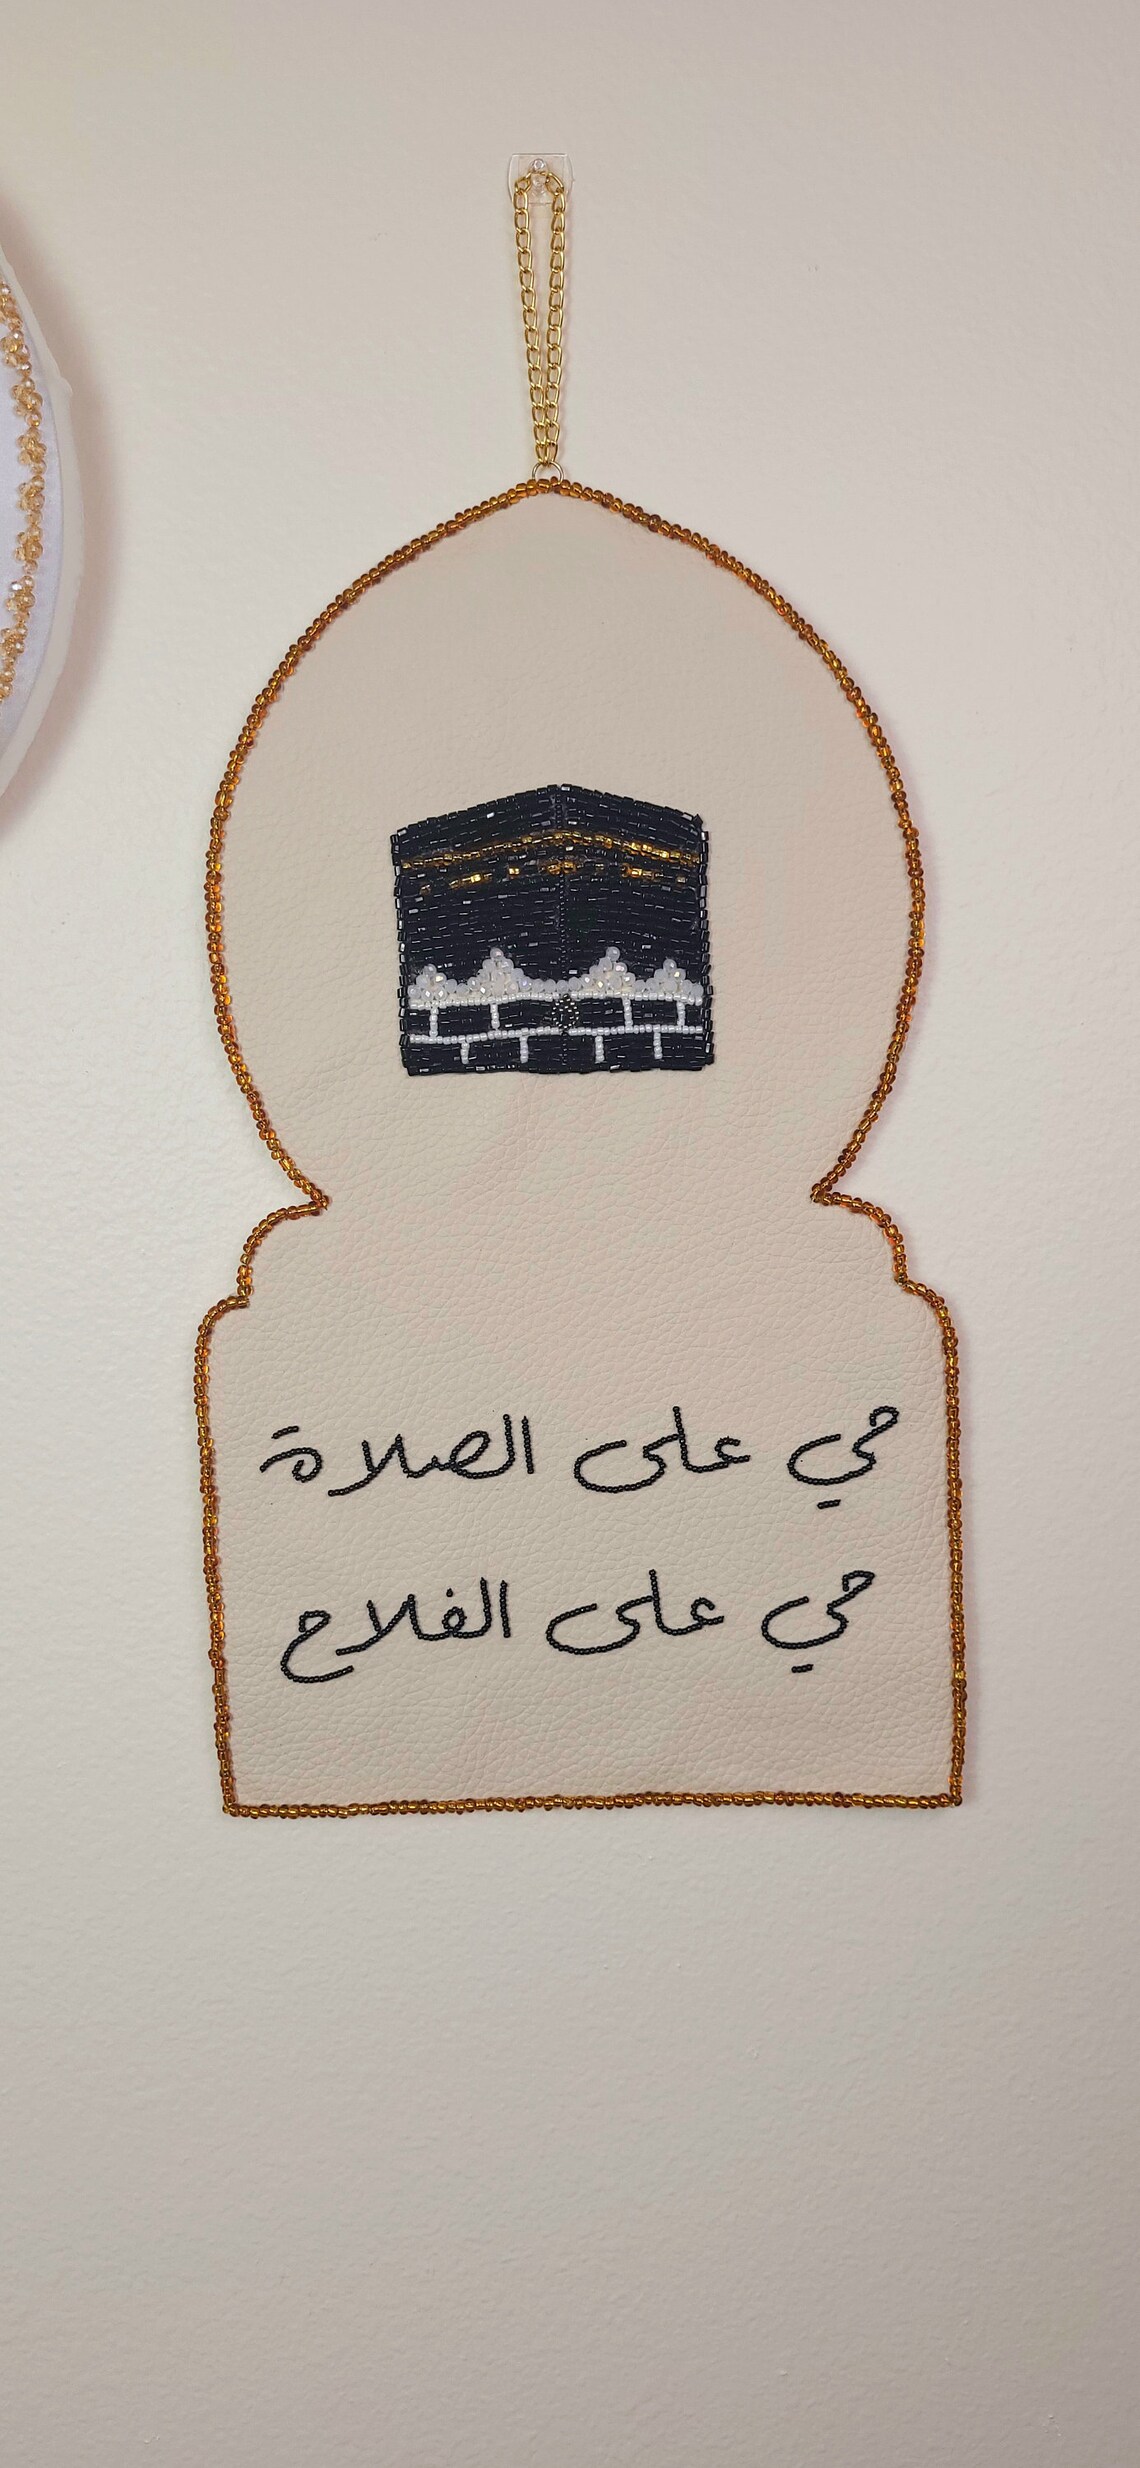 حي على الصلاة
حي على الفلاح